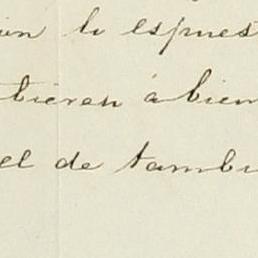 ún lo espues
bieren á bien
el de tambi